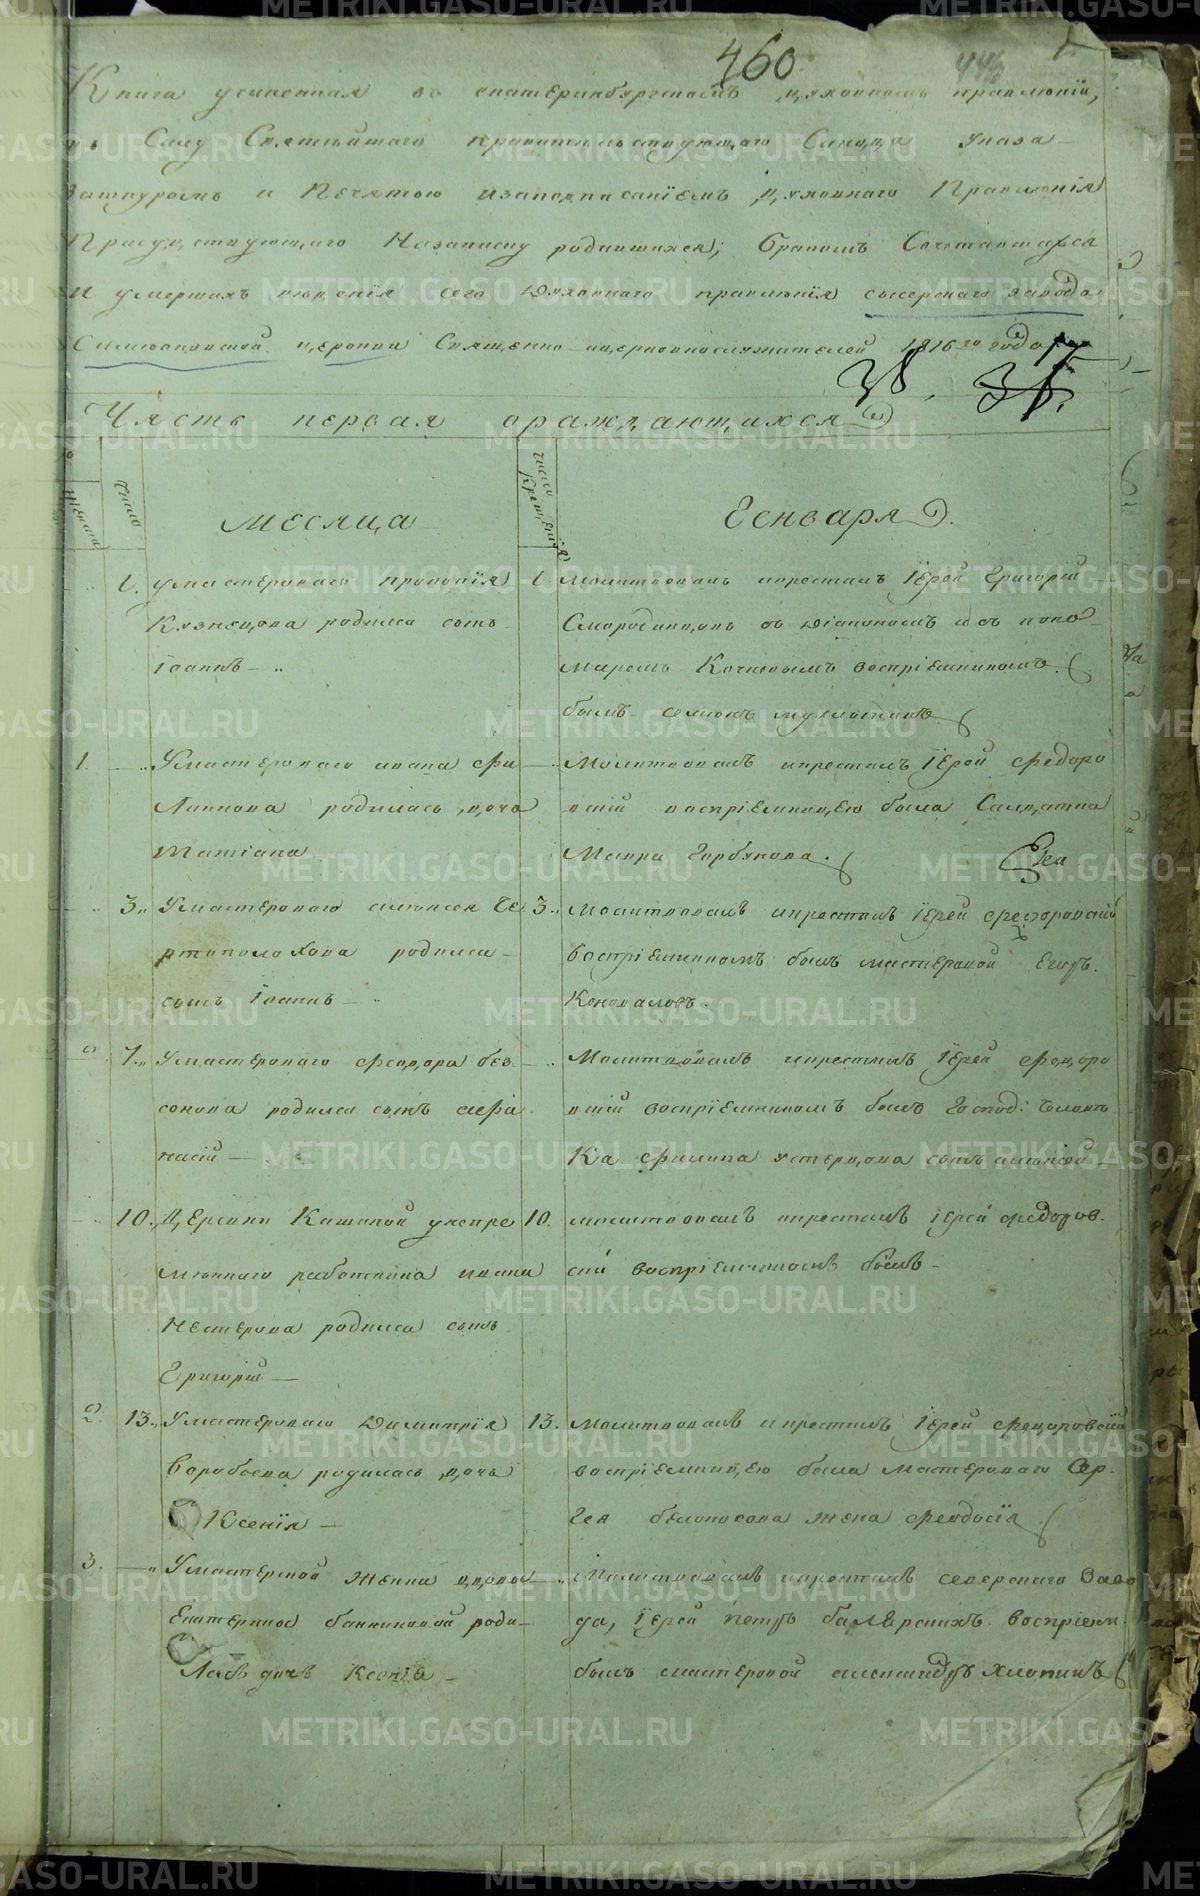 460
Книга учиненная въ екатеринбургскомъ духовномъ правленіи,
въ Силу Святейшаго правительствующаго Синода указа
Зашнуромъ и Печатью изаподписаніемъ духовнаго Правленія
Присудствующаго Назаписку родившихся; бракомъ Сочетавшихся
и умершихъ ведения сего Духовнаго правленія сысерскаго завода
Симеоновской церкви Священно церковнослужителей 1816го года
38. 17
Часть первая ораждающихся
число
число крещенія
месяца
Генваря
1. умастероваго прокопія
Кузнецова родился сынъ
Іоаннъ
1 Молитвовалъ икрестилъ Іерей Григорій
Смародинцовъ съ діакономъ и съ поно
маремъ Кочневымъ воспріемникомъ
былъ семионъ
1. Умастероваго ивана фи
Липпова родилась дочь
татіана
Молитвовалъ икрестилъ Іерей федоро
вскій воспріемницею была Салдатка
Мавра Горбунова.
3 Умастероваго алексея Че
ртополохова родился
сынъ Іоаннъ
3 Молитвовалъ икрестилъ Іерей федоровскій
воспріемникомъ былъ мастеровой Егоръ
Коноваловъ.
7 Умастероваго феодора без
сонова родился сынъ афа
насій
Молитвовалъ икрестилъ Іерей федоро
вскій воспріемникомъ былъ
Ка филипа устерцова сынъ алексей
10. Деревни Кашиной укопре
меннаго работника ивана
Нестерова родился сынъ
Григорій
10. молитвовалъ икрестилъ іерей федоров
скій воспріемникомъ былъ
2. 13 Умастероваго Димитрія
Воробьева родилась дочь
Ксенія
13. Молитвовалъ икрестилъ Іерей федоровскій
воспріемницею была мастероваго Сер
гея белоносова жена феодосія
3. Умастерской женки вдовы
Екатерины банниковой роди
Лась дочь Ксенія
Молитвовалъ икрестилъ северскаго Заво
да, Іерей Петръ воспріем
былъ мастеровой александръ хлопинъ
METRIKI.GASO-URAL.RU